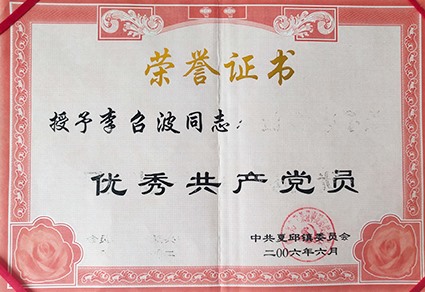 荣誉证书
授予李台波同志
优秀共产党员
中共夏邱镇委员会
二00六年六月